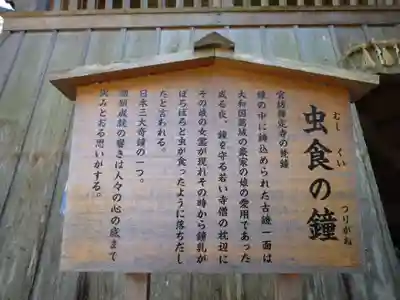 虫食の鐘
むし くい つりがね
宮坊釋定寺の梵鐘
鐘の中に鋳込められた古鏡一面は
大和国葛城の豪家の娘の愛用であった
或る夜、鐘を守る若い寺僧の枕辺に
その娘の女霊が現れその時から鐘乳が
ぼろぼろと虫が食ったように落ちだし
たと言われる。
日本三大奇鐘の一つ。
諸願成就の響きは人々の心の底まで
沁みとおる思いがする。